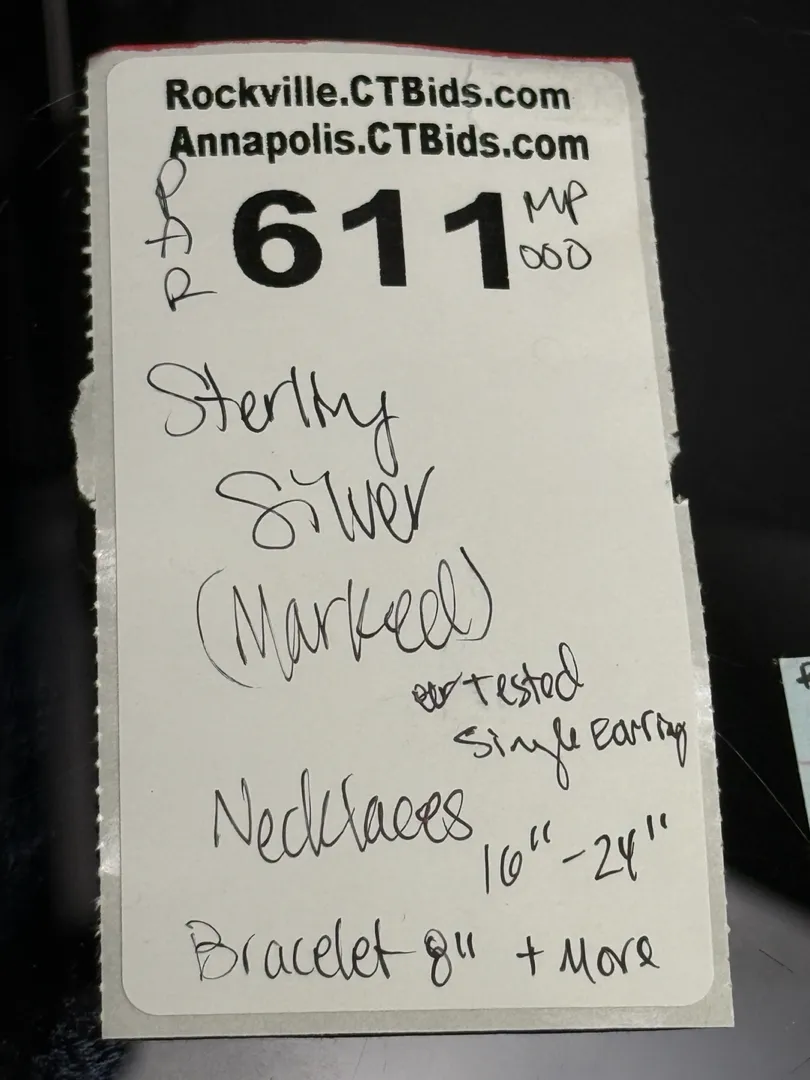 Rockville.CTBids.com
Annapolis.CTBids.com
611
MP
000
Sterling
Silver
(Marked)
or tested
single Earring
Necklaces
16"-24"
Bracelet 8" + More